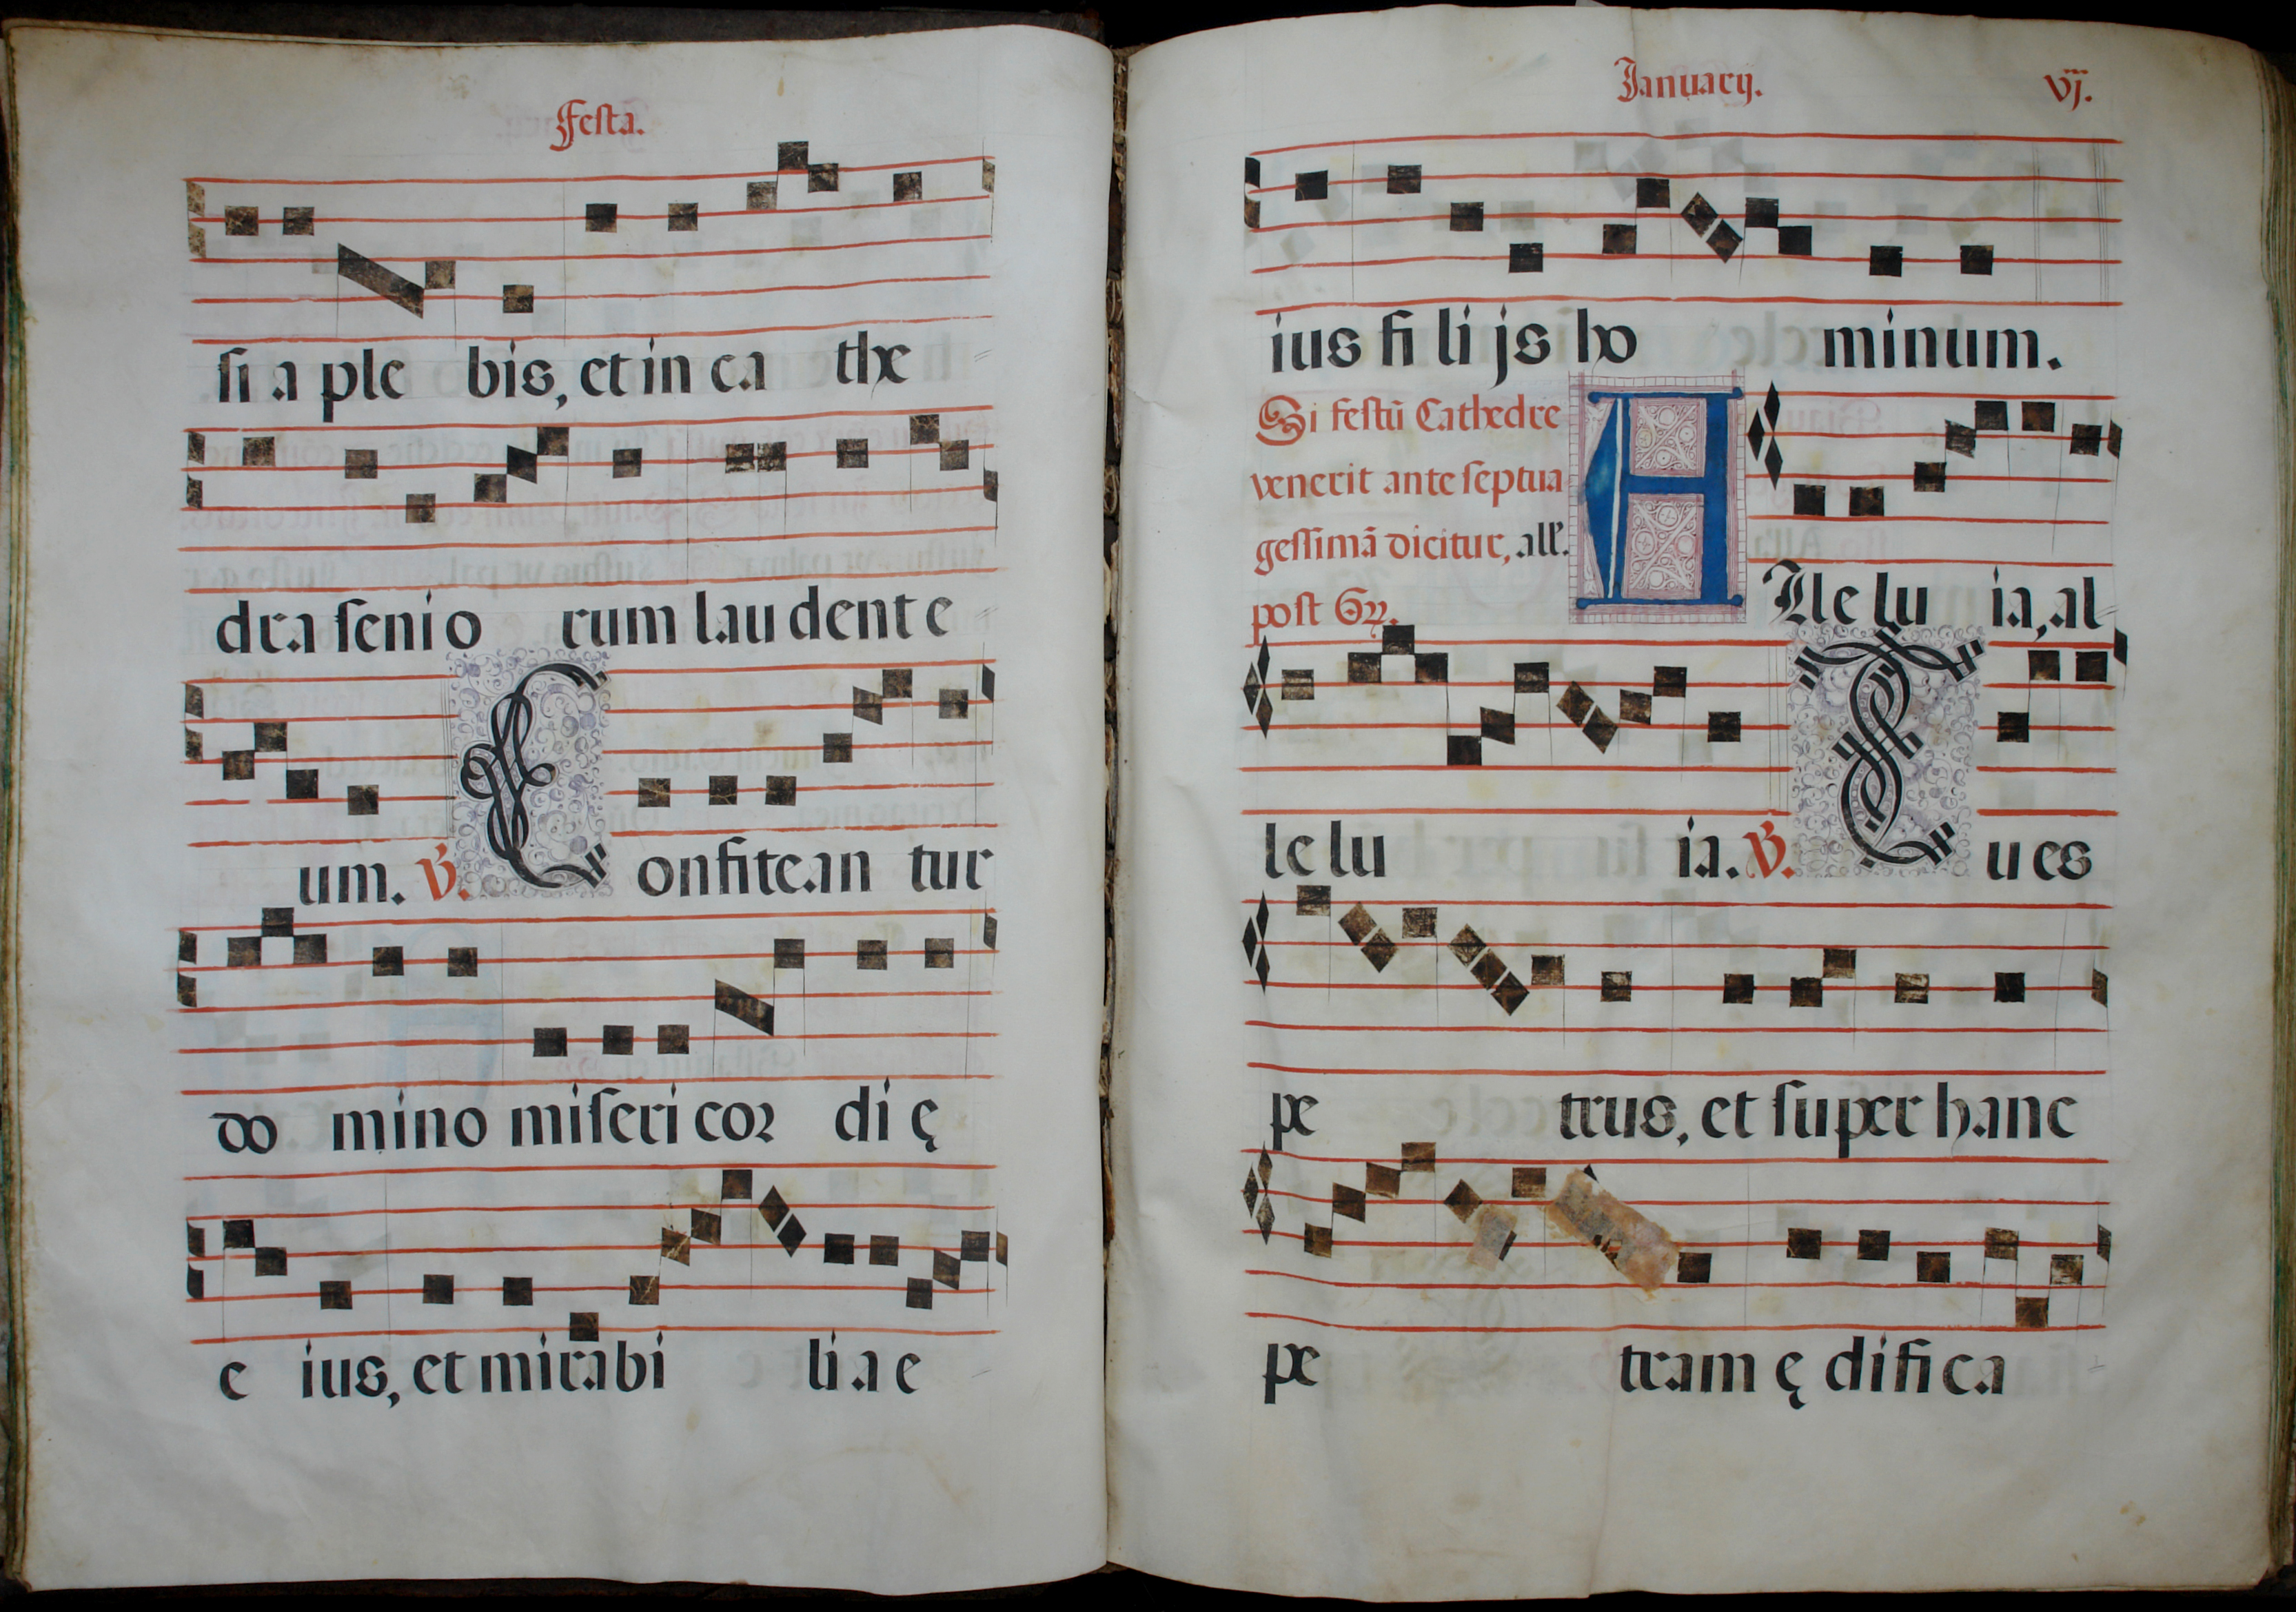 Festa.
si a ple bis, et in ca the
dra seni o rum lau dent e
um. V. C onfitean tur
do mino misericor di ę
e ius, et mirabi li a e
Januarij. vj.
ius fi li js ho minum.
Si festũ Cathedre
venerit ante septua
gessimã dicitur, all'.
post Gr̃.
A lle lu ia, al
le lu ia. V. T u es
pe trus, et super hanc
pe tram ę difi ca